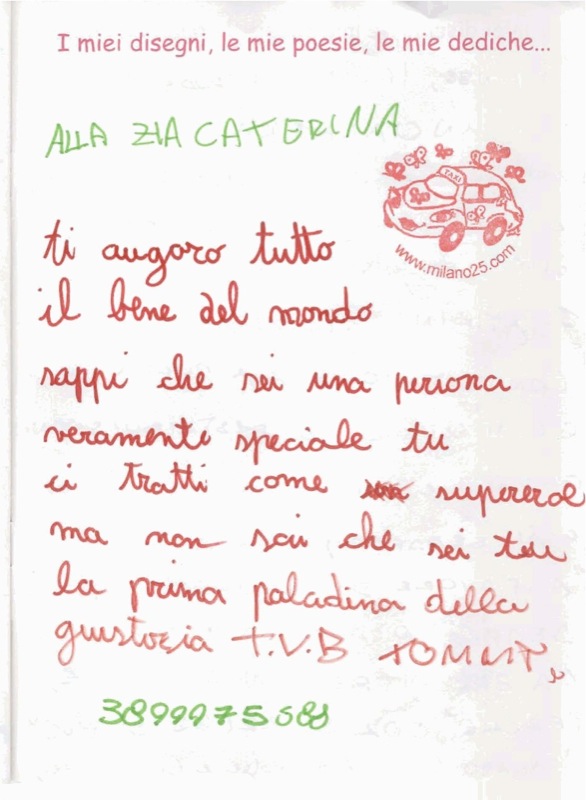 I miei disegni, le mie poesie, le mie dediche...
ALLA ZIA CATERINA
TAXI
www.milano25.com
ti auguro tutto
il bene del mondo
sappi che sei una persona
veramente speciale tu
ci tratti come supereroe
ma non sai che sei tu
la prima paladina della
giustozia T.V.B